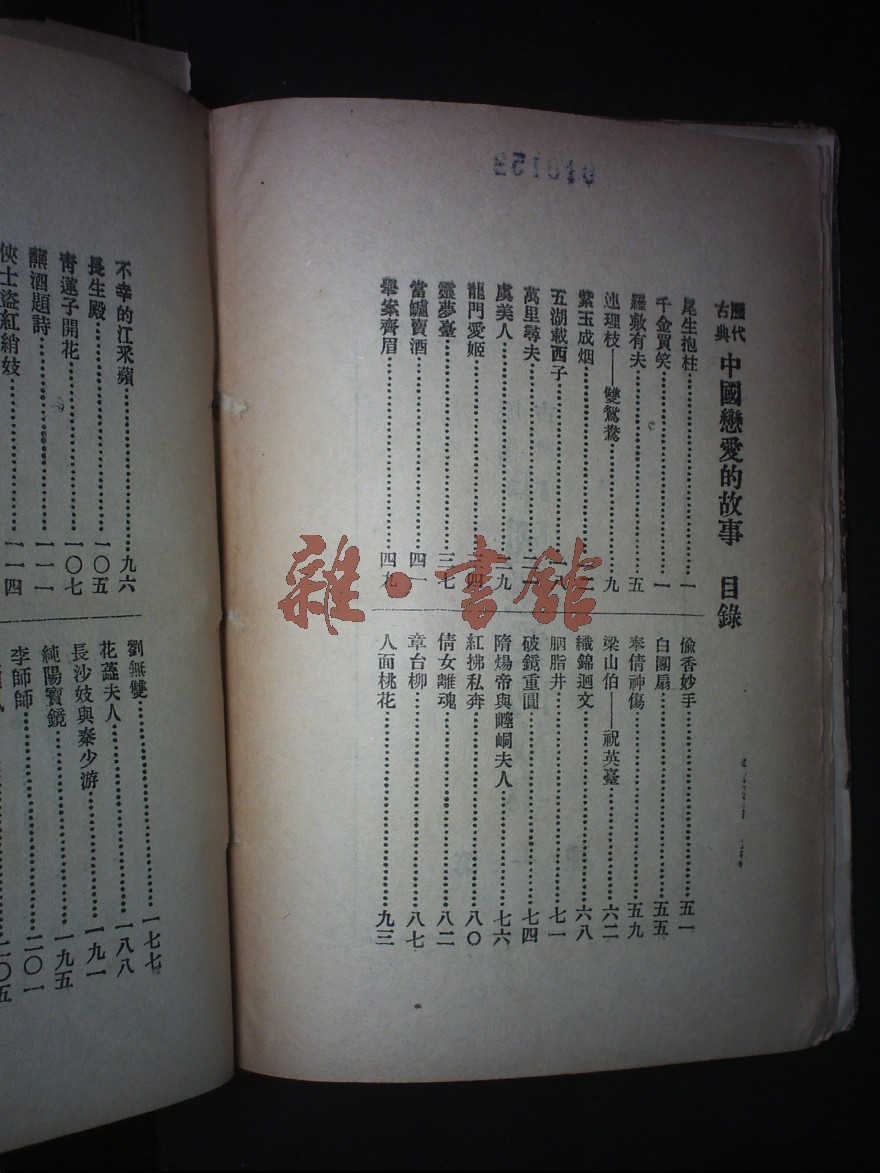 歷代古典 中國戀愛的故事 目錄
尾生抱柱……一
千金買笑……一
羅敷有夫……五
連理枝——雙鴛鴦……九
紫玉成烟……一二
五湖載西子……一八
萬里尋夫……二一
虞美人……二九
龍門愛姬……三四
靈夢臺……三七
當鑪賣酒……四一
舉案齊眉……四九
偷香妙手……五一
白團扇……五五
奉倩神傷……五九
梁山伯——祝英臺……六二
織錦迴文……六八
胭脂井……七一
破鏡重圓……七四
隋煬帝與崆峒夫人……七六
紅拂私奔……八〇
倩女離魂……八二
章台柳……八七
人面桃花……九三
不幸的江釆蘋……九六
長生殿……一〇五
青蓮子開花……一〇七
蘸酒題詩……一一一
俠士盜紅綃妓……一一四
劉無雙……一七七
花蕊夫人……一八八
長沙妓與秦少游……一九一
純陽寶鏡……一九五
李師師……二〇一
二〇五
雜·書館